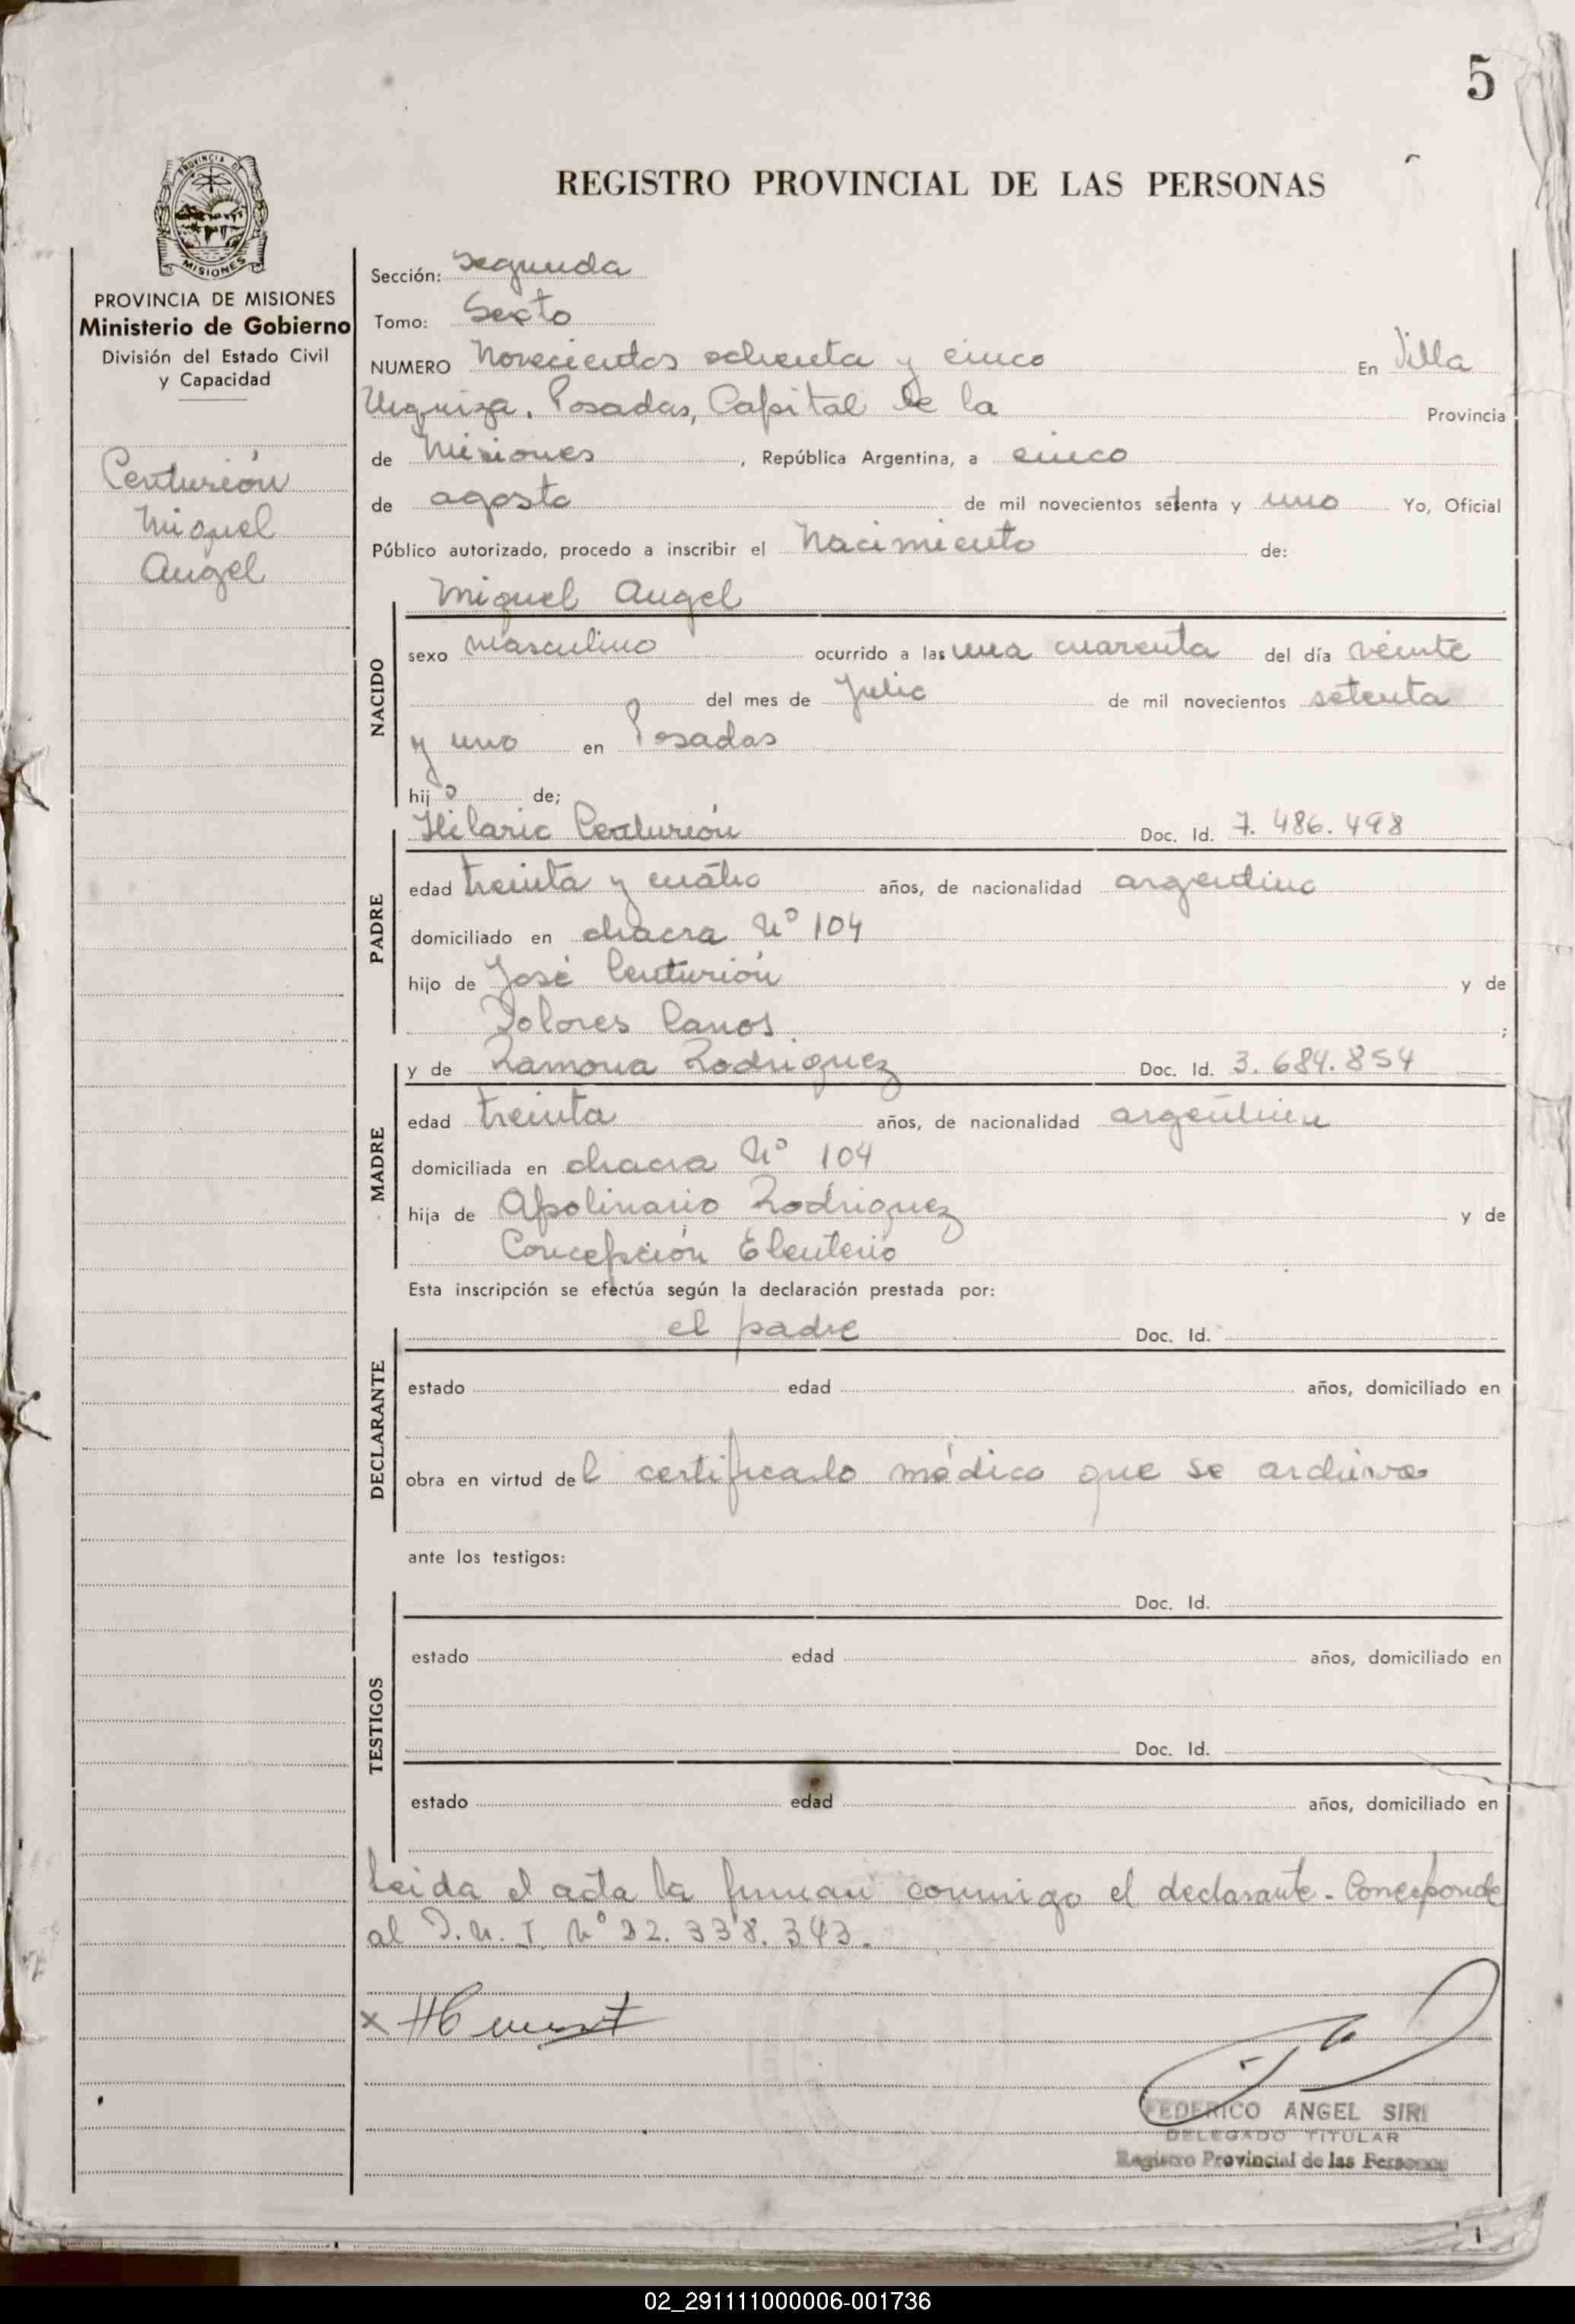 5
PROVINCIA DE
MISIONES
REGISTRO PROVINCIAL DE LAS PERSONAS
PROVINCIA DE MISIONES
Ministerio de Gobierno
División del Estado Civil
y Capacidad
Centurión
Miguel
Angel
Sección: Segunda
Tomo: Sexto
NUMERO Novecientos ochenta y cinco En Villa
Urquiza. Posadas, Capital de la Provincia
de Misiones, República Argentina, a cinco
de agosto de mil novecientos setenta y uno Yo, Oficial
Público autorizado, procedo a inscribir el Nacimiento de:
NACIDO
Miguel Angel
sexo masculino ocurrido a las una cuarenta del día veinte
del mes de Julio de mil novecientos setenta
y uno en Posadas
hijo de;
PADRE
Hilario Centurión Doc. Id. 7.486.498
edad treinta y cuatro años, de nacionalidad argentino
domiciliado en chacra Nº 104
hijo de José Centurión y de
Dolores Canos;
MADRE
y de Ramona Rodriguez Doc. Id. 3.684.854
edad treinta años, de nacionalidad argentina
domiciliada en chacra Nº 104
hija de Apolinario Rodriguez y de
Concepción Eleuterio
Esta inscripción se efectúa según la declaración prestada por:
DECLARANTE
el padre Doc. Id.
estado edad años, domiciliado en
obra en virtud del certificado médico que se archiva
ante los testigos:
TESTIGOS
Doc. Id.
estado edad años, domiciliado en
Doc. Id.
estado edad años, domiciliado en
Leida el acta la firman conmigo el declarante. Corresponde
al D.N.I. Nº 22.338.343.
x
FEDERICO ANGEL SIRI
DELEGADO TITULAR
Registro Provincial de las Personas
02_291111000006-001736